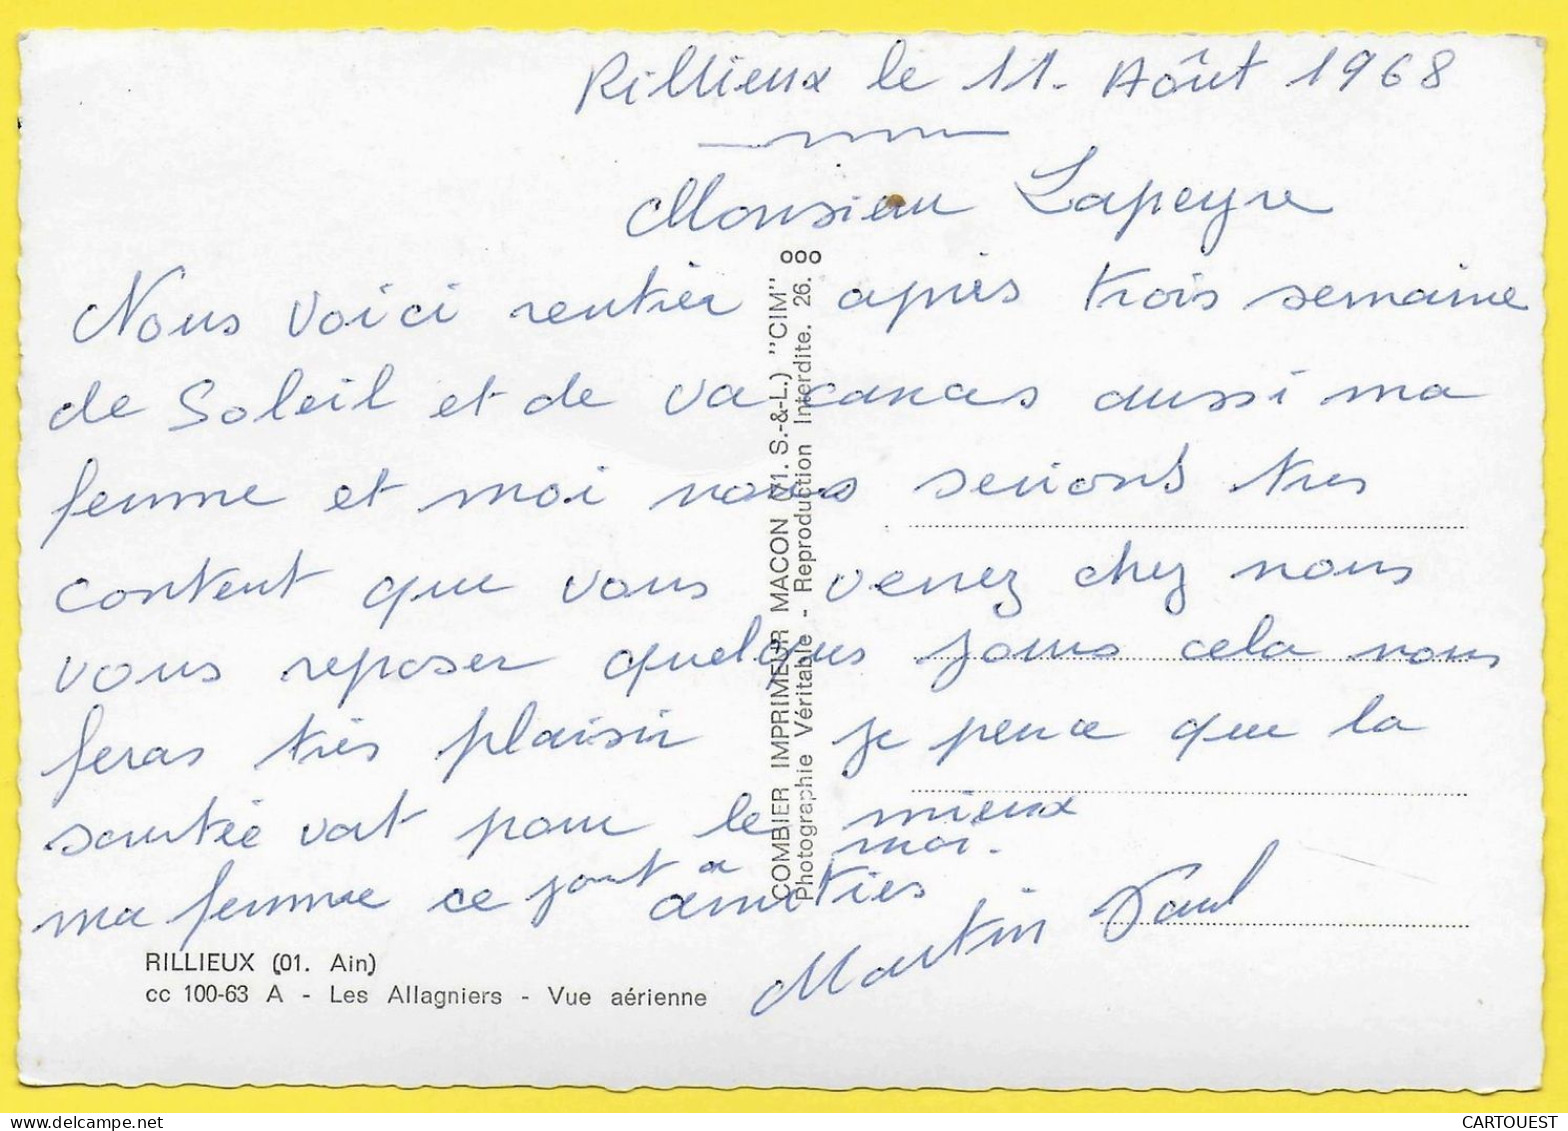 Rillieux le 11. Aôut 1968
Monsieur Lapeyre
Nous voici rentrér après trois semaine
de Soleil et de va cancas aussi ma
femme et moi nous serions tres
content que vous venez chez nous
vous reposer quelques jours cela nous
feras très plaisir je pence que la
santée vat pour le mieux
ma femme ce joint a moi.
amitiés
Martin Paul
RILLIEUX (01. Ain)
cc 100-63 A - Les Allagniers - Vue aérienne
COMBIER IMPRIMEUR MACON (71. S.-&-L.) "CIM"
Photographie Véritable - Reproduction Interdite. 26.
ooo
CARTOUEST
delcampe.net